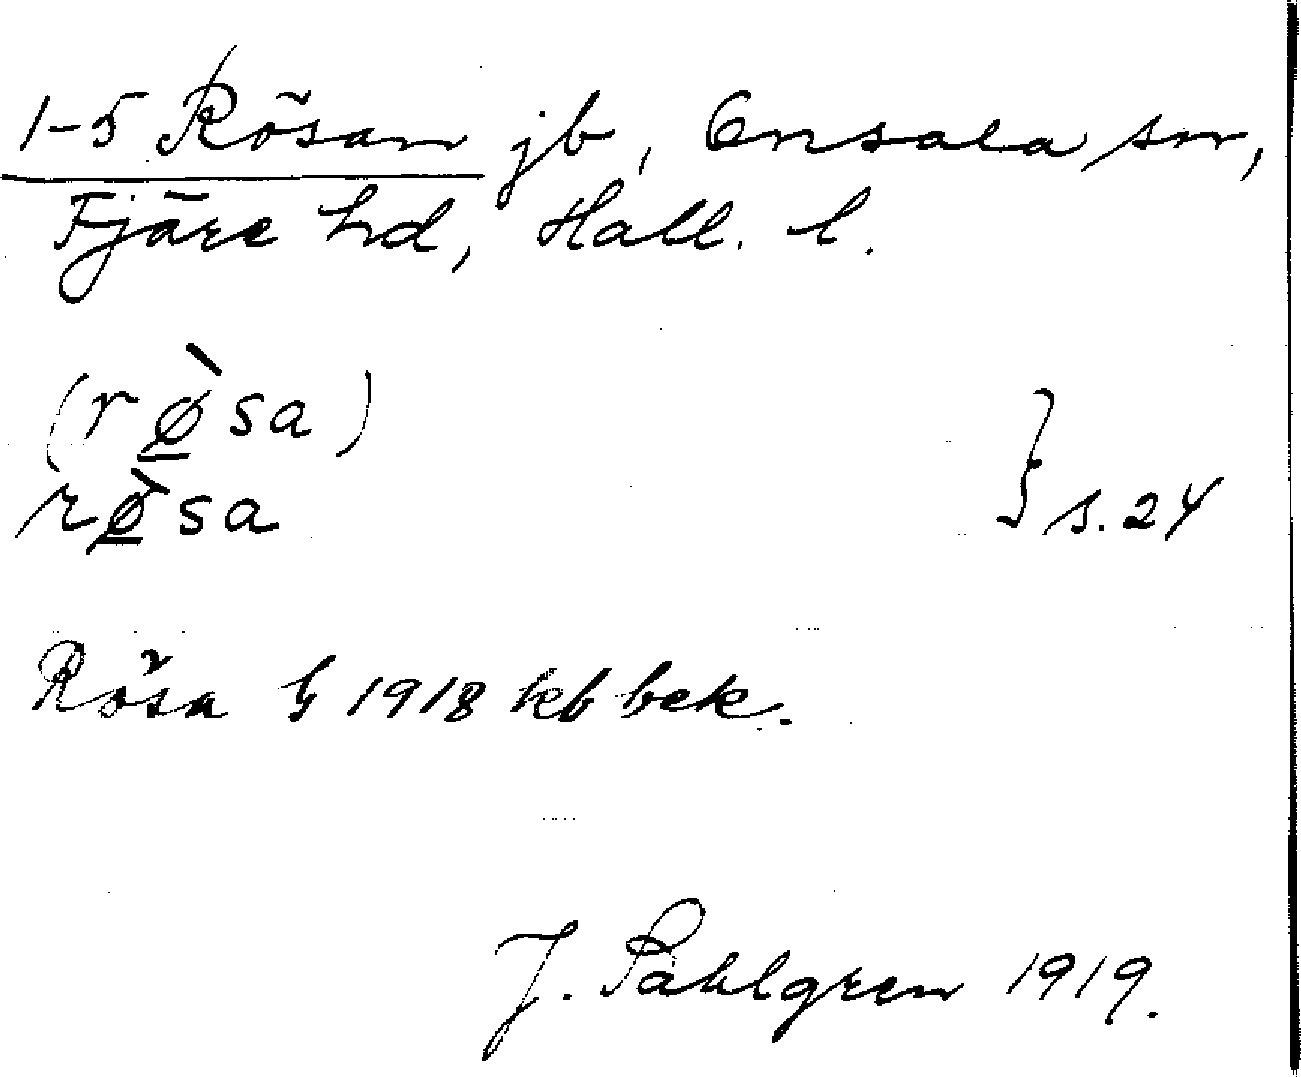 1-5 Rösan jb, Onsala sn,
Fjäre hd, Hall. l.
(rø̀sa)
rø̀sa } s. 24
Rösa 1918 kb bek.
J. Sahlgren 1919.